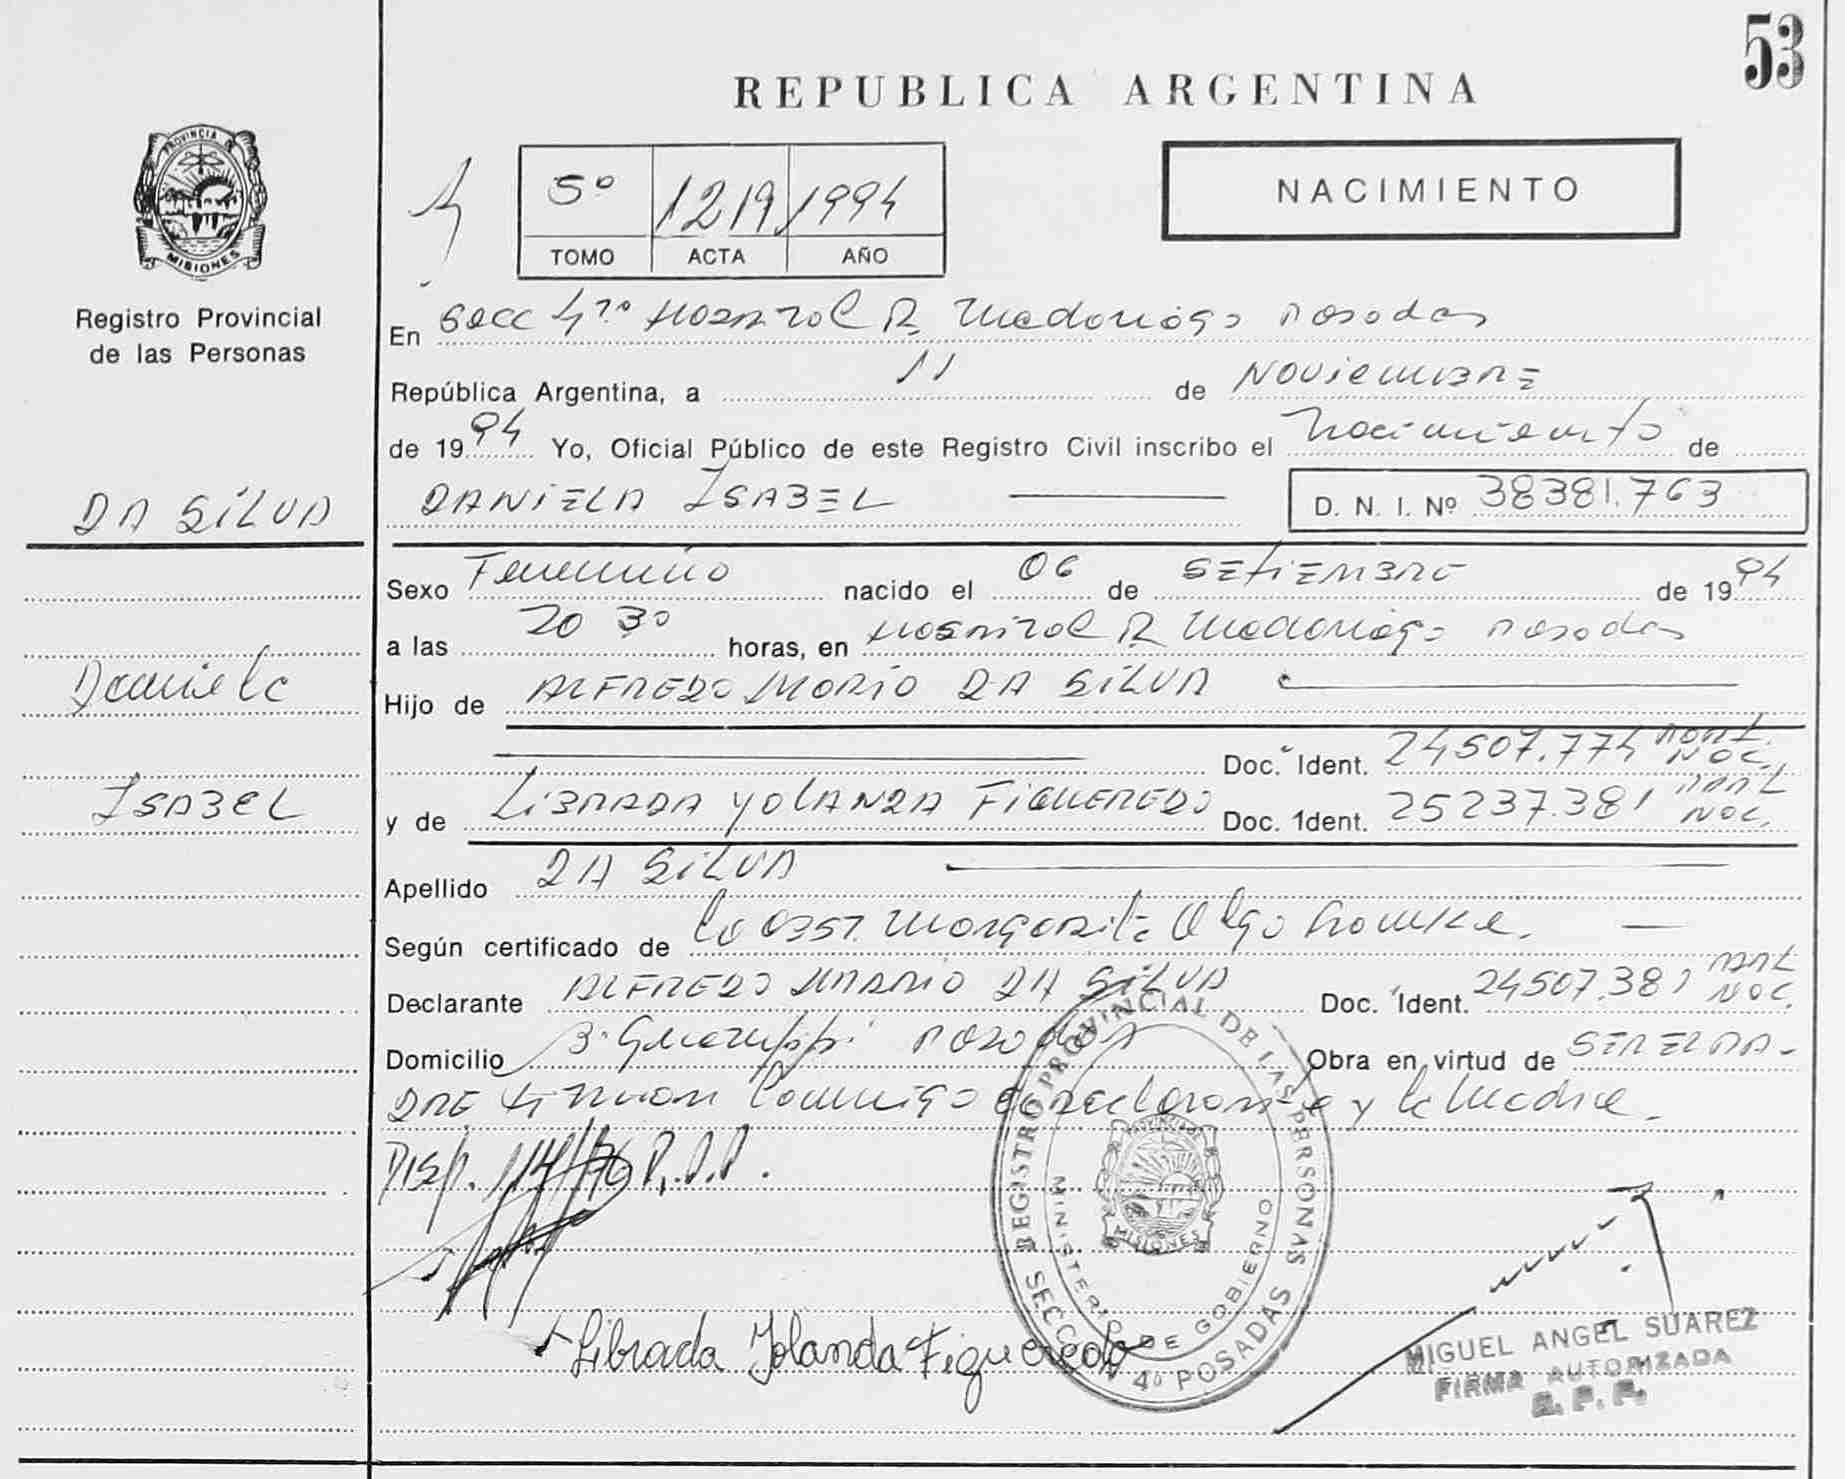 53
REPUBLICA ARGENTINA
PROVINCIA DE
MISIONES
Registro Provincial
de las Personas
5º 1219 1994
TOMO ACTA AÑO
NACIMIENTO
En Secc 4ta Hospital R. Madariaga Posadas
República Argentina, a 11 de Noviembre
de 1994 Yo, Oficial Público de este Registro Civil inscribo el Nacimiento de
DA SILVA
DANIELA ISABEL D. N. I. Nº 38381.763
Sexo Femenino nacido el 06 de SETIEMBRE de 1994
a las 20 30 horas, en Hospital R Madariaga Posadas
Daniela
Hijo de ALFREDO MARIO DA SILVA
Doc. Ident. 24507.774
Isabel
y de LIBRADA YOLANDA FIGUEREDO Doc. Ident. 25237.381
Apellido DA SILVA
Según certificado de la Obst. Margarita Olga
Declarante ALFREDO MARIO DA SILVA Doc. Ident. 24507.381
Domicilio Posadas Obra en virtud de SER EL PA-
DRE Firman Conmigo el declarante y la Madre.
Disp. 114/76
Librada Yolanda Figueredo
REGISTRO PROVINCIAL DE LAS PERSONAS
MINISTERIO DE GOBIERNO
MISIONES
SECC. 4ª POSADAS
MIGUEL ANGEL SUAREZ
FIRMA AUTORIZADA